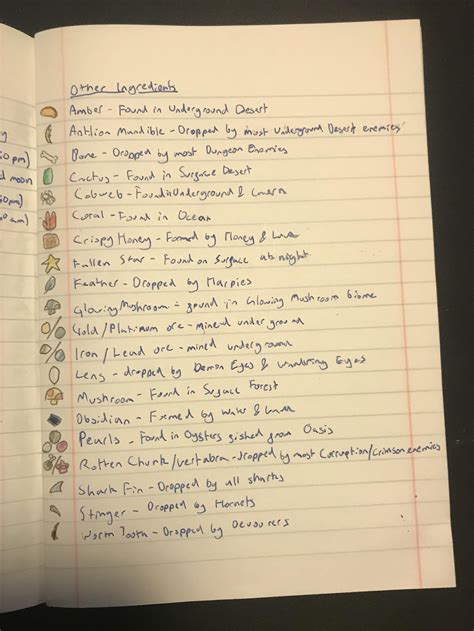 50pm)
d moon
50pm)
0 am)
Other Ingredients
Amber - Found in Underground Desert
Antlion Mandible - Dropped by most Underground Desert enemies
Bone - Dropped by most Dungeon Enemies
Cactus - Found in Surface Desert
Cobweb - Found in Underground & Caverns
Coral - Found in Ocean
Crispy Honey - Formed by Honey & Lava
Fallen Star - Found on Surface at night
Feather - Dropped by Harpies
Glowing Mushroom - found in Glowing Mushroom biome
Gold/Platinum ore - mined underground
Iron/Lead ore - mined underground
Lens - dropped by Demon Eyes & Wandering Eyes
Mushroom - Found in Surface Forest
Obsidian - Formed by Water & Lava
Pearls - Found in Oysters fished from Oasis
Rotten Chunk/vertabra - dropped by most Corruption/Crimson enemies
Shark Fin - Dropped by all sharks
Stinger - Dropped by Hornets
Worm Tooth - Dropped by Devourers